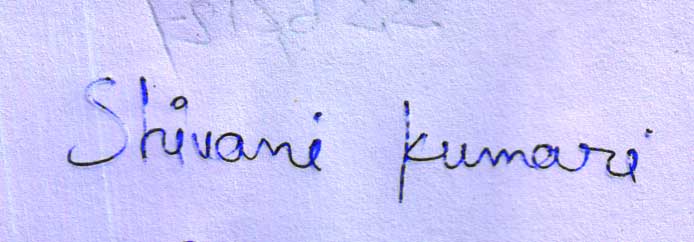 Shivani kumari